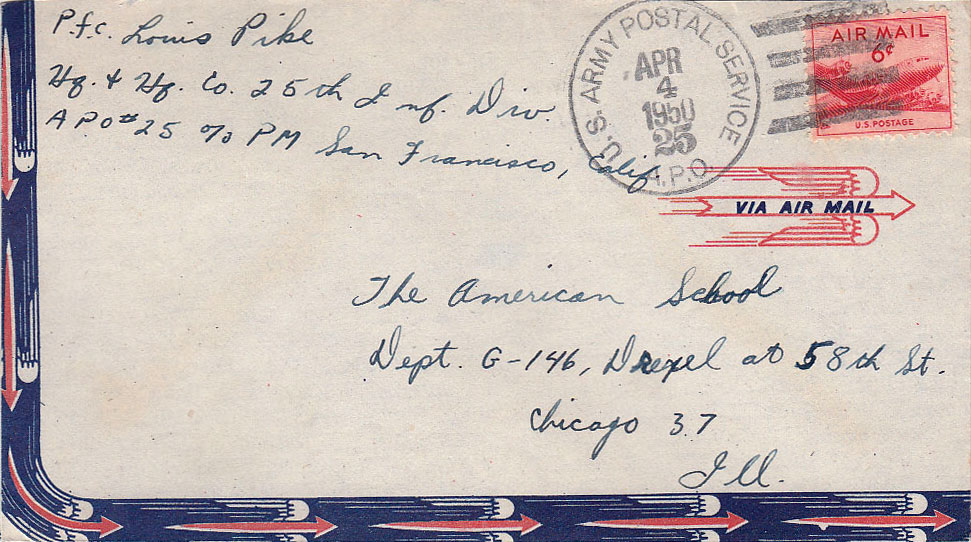 P.f.c. Louis Pike
Hq. & Hq. Co. 25th Inf. Div.
APO # 25 c/o PM San Francisco, Calif.
U.S. ARMY POSTAL SERVICE
APR
4
1950
25
A.P.O
AIR MAIL
6¢
U.S. POSTAGE
VIA AIR MAIL
The American School
Dept. G-146, Drexel at 58th St.
Chicago 37
Ill.